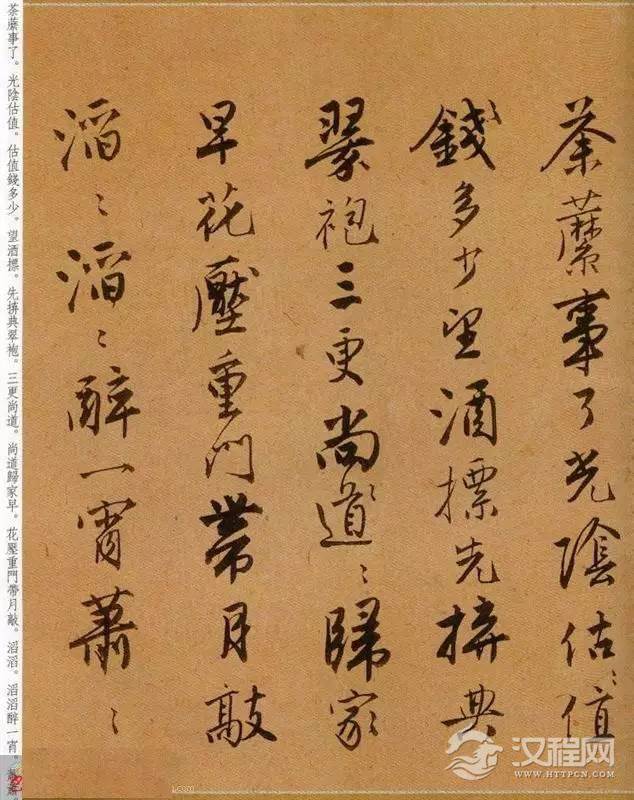 荼蘼事了光陰估〻值〻
錢多少望酒摽先拚典
翠袍三更尚〻道〻歸家
早花壓重門帶月敲
滔〻滔〻醉一宵蕭〻
荼蘼事了。光陰估值。估值錢多少。望酒摽。先拚典翠袍。三更尚道。尚道歸家早。花壓重門帶月敲。滔滔。滔滔醉一宵。
汉程网
WWW.HTTPCN.COM